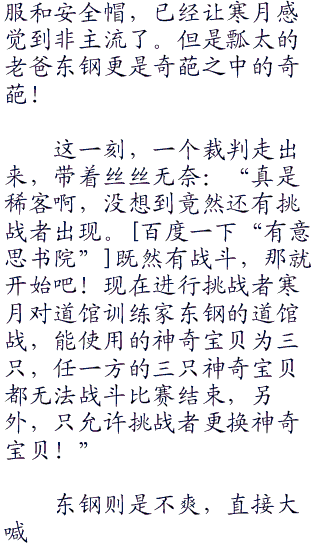 服和安全帽，已经让寒月感
觉到非主流了。但是瓢太的
老爸东钢更是奇葩之中的奇
葩！
这一刻，一个裁判走出
来，带着丝丝无奈：“真是
稀客啊，没想到竟然还有挑
战者出现。[百度一下“有意
思书院”]既然有战斗，那就
开始吧！现在进行挑战者寒
月对道馆训练家东钢的道馆
战，能使用的神奇宝贝为三
只，任一方的三只神奇宝贝
都无法战斗比赛结束，另
外，只允许挑战者更换神奇
宝贝！”
东钢则是不爽，直接大
喊